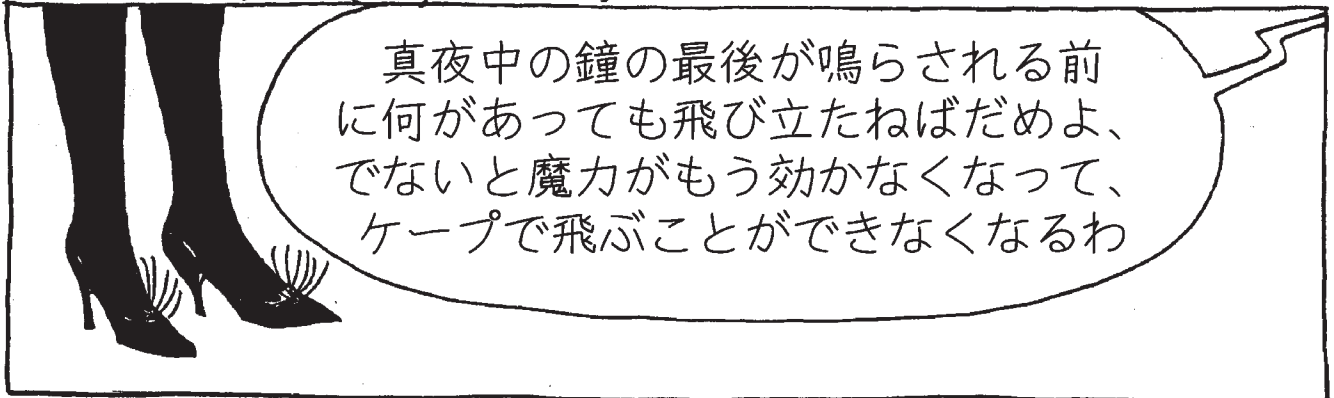 真夜中の鐘の最後が鳴らされる前
に何があっても飛び立たねばだめよ、
でないと魔力がもう効かなくなって、
ケープで飛ぶことができなくなるわ